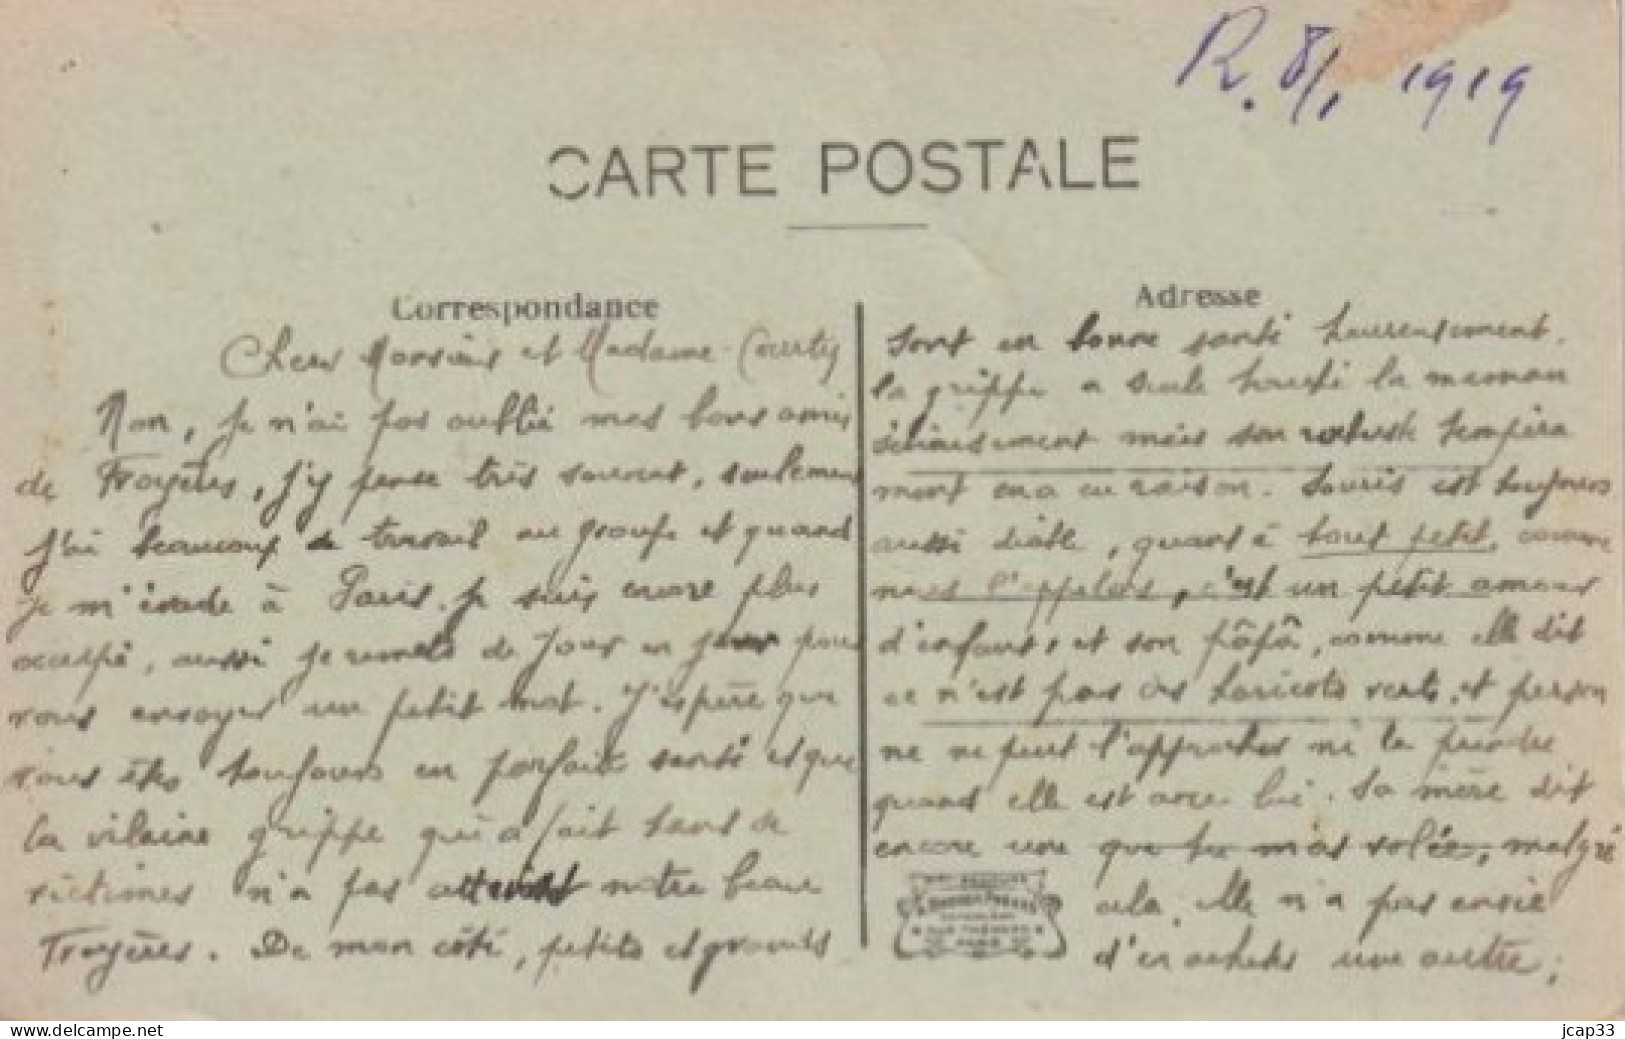 R. 8/1 1919
CARTE POSTALE
Correspondance
Chers Monsieur et Madame Courty
Non, je n'ai pas oublié mes bons amis
de Troyères, j'y pense très souvent, seulement
j'ai beaucoup de travail au groupe et quand
je m'évade à Paris, je suis encore plus
occupé, aussi je remets de jour en jour pour
vous envoyer un petit mot. J'espère que
vous êtes toujours en parfaite santé et que
la vilaine grippe qui a fait tant de
victimes n'a pas atteint notre beau
Troyères. De mon côté, petits et grands
Adresse
sont en bonne santé heureusement.
la grippe a seule touché la maman
sérieusement mais son robuste tempéra
ment en a eu raison. Souris est toujours
aussi diable, quant à tout petit, comme
nous l'appelons, c'est un petit amour
d'enfant, et son pâpâ, comme elle dit
ce n'est pas des haricots verts, et person
ne ne peut l'approcher ni le prendre
quand elle est avec lui. Sa mère dit
encore une que tu m'as volée, malgré
cela, elle n'a pas envie
d'en acheter une autre;
PARIS
www.delcampe.net
jcap33